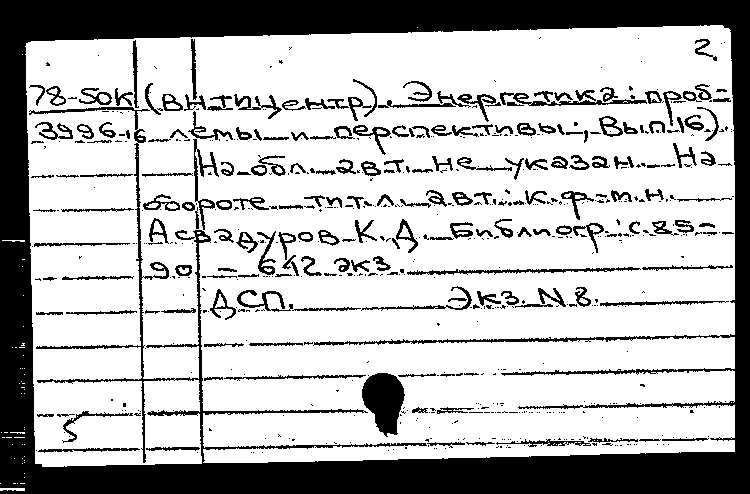 2.
78-50К (ВНТИЦентр). Энергетика: проб-
3996-16 лемы и перспективы; Вып.16).
На обл. авт. не указан. На
обороте тит.л. авт.: к.ф-м.н.
Асвадуров К.Д. Библиогр.: с.85-
90. - 642 экз.
ДСП. Экз. N 8.
5